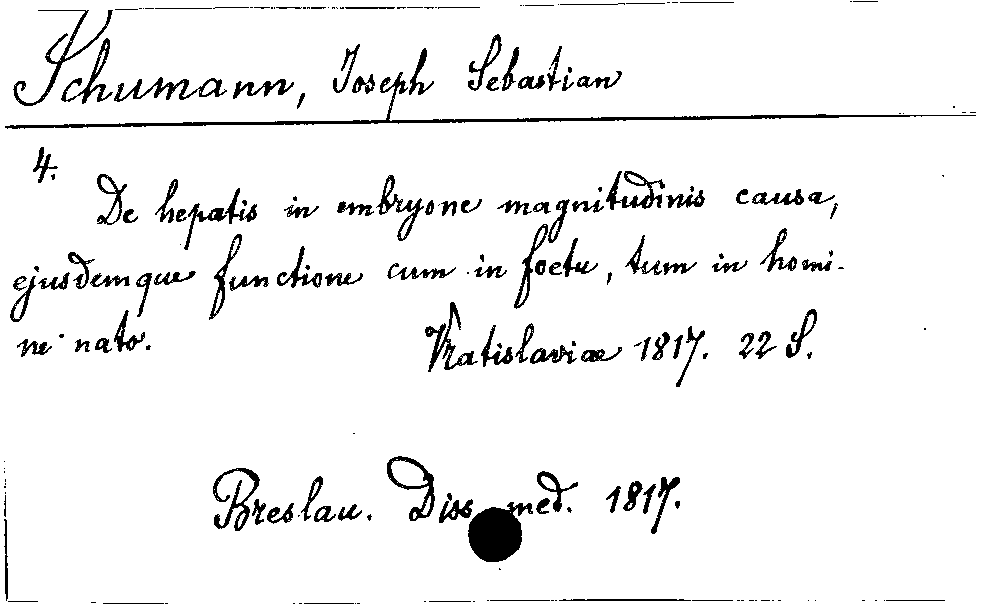 Schumann, Joseph Sebastian
4.
De hepatis in embryone magnitudinis causa,
ejusdemque functione cum in foetu, tum in homi-
ne nato. Vratislaviae 1817. 22 S.
Breslau. Diss. med. 1817.